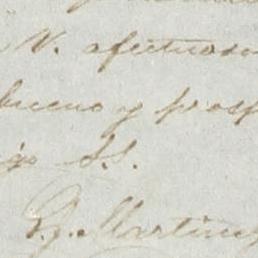 V. afectuoso
bueno y prosp
igo S.S.
G. Martinez